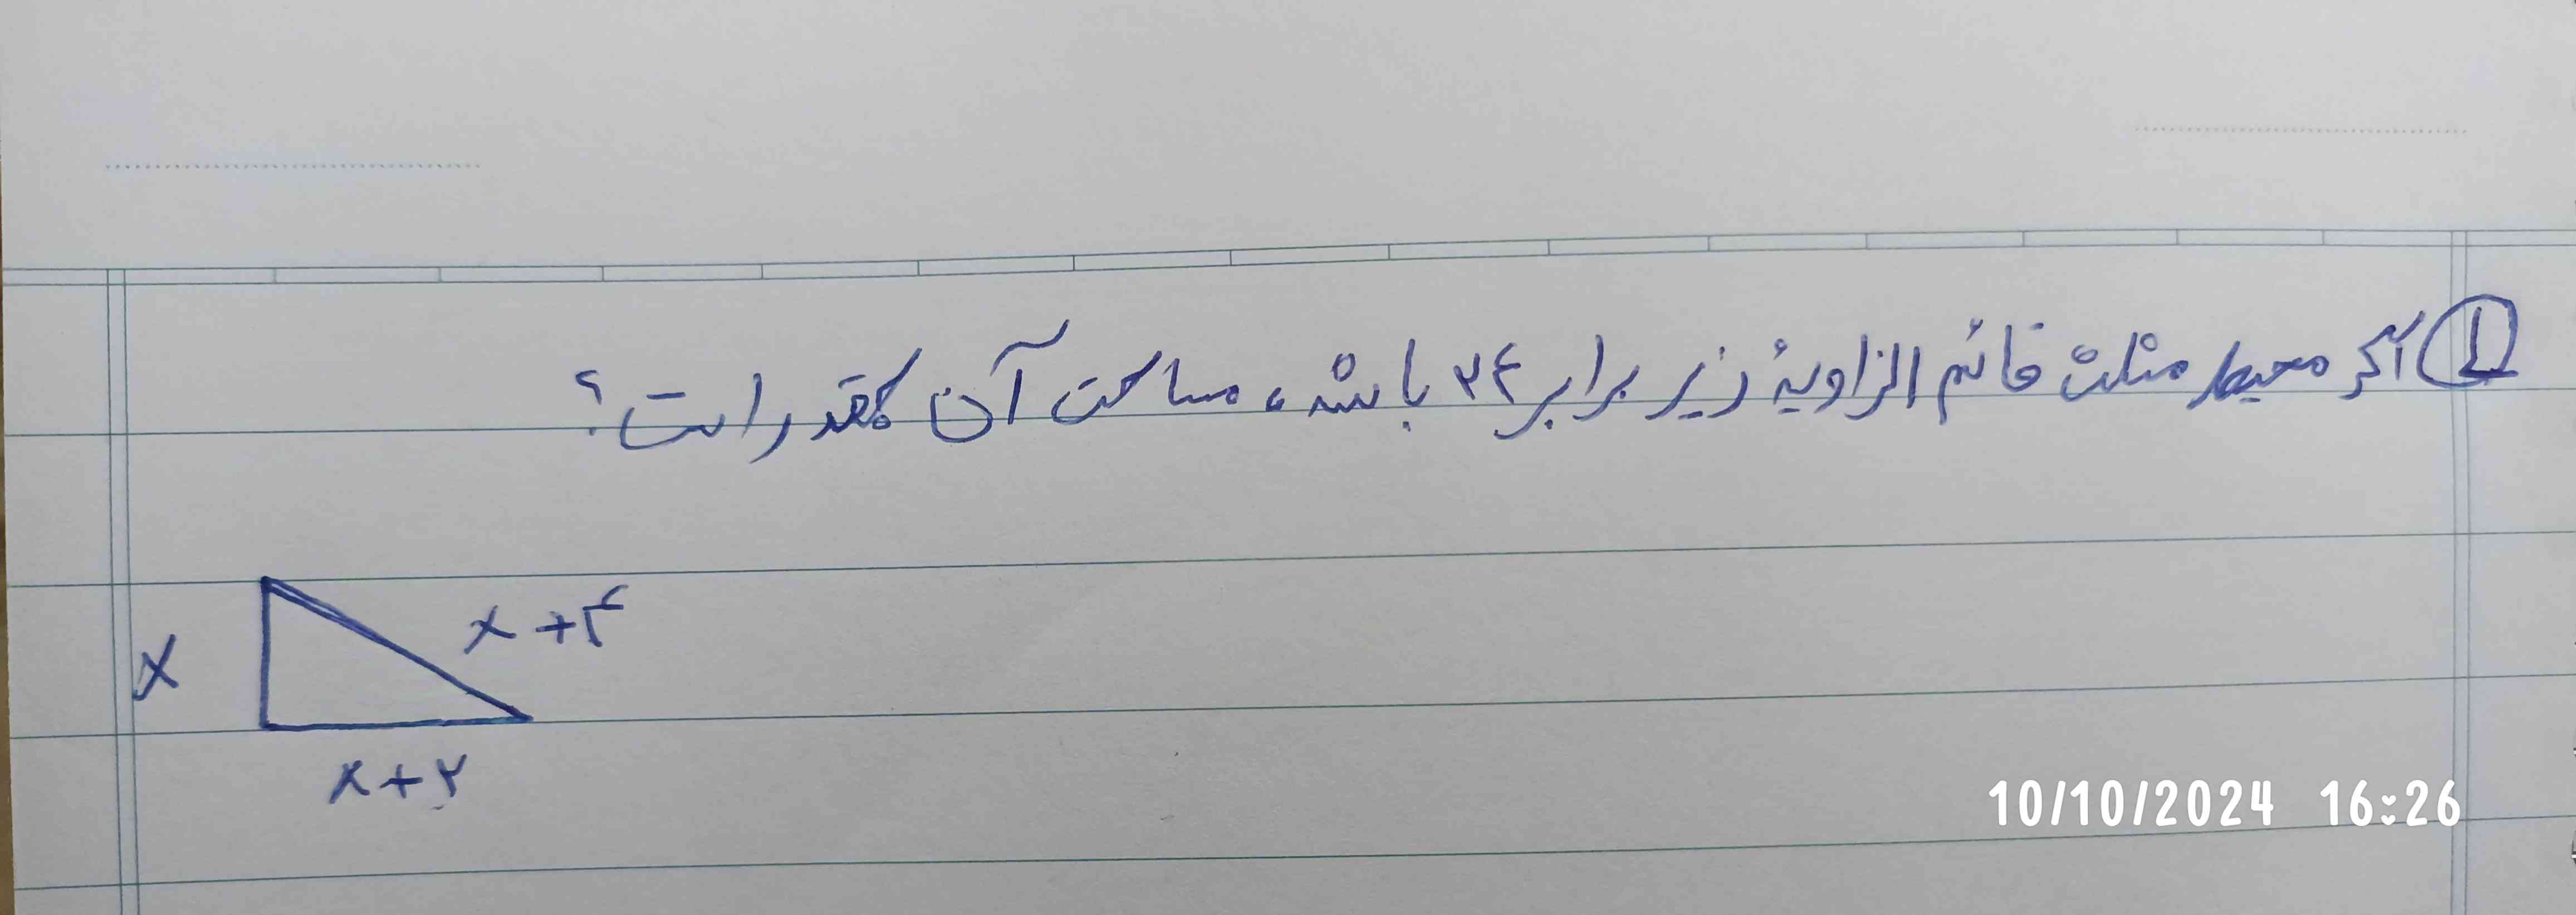 ① اگر محیط مثلث قائم الزاویهٔ زیر برابر ۲۴ باشد، مساحت آن چقدر است؟
x + ۴
x
x + ۲
10/10/2024 16:26